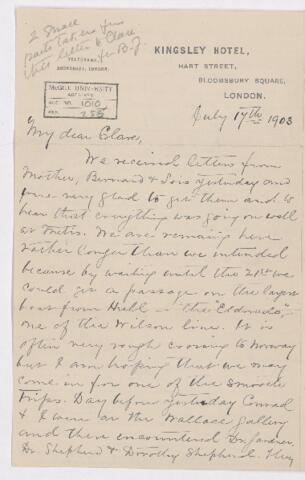 2 small
parts taken from
this letter to Clare
for B.J.
KINGSLEY HOTEL,
HART STREET,
BLOOMSBURY SQUARE,
LONDON.
BROADWAY, LONDON.
McGILL UNIVERSITY
ARCHIVES
ACC. NO. 1010
REF. 255
July 17th 1903
My dear Clare,
We received letters from
Mother, Bernard & Lois yesterday and
were very glad to get them and to
hear that everything was going on well
at Metis. We are remaining here
rather longer than we intended
because by waiting until the 21st we
could get a passage on the largest
boat from Hull - the "Eldorado",
one of the Wilson line. It is
often very rough crossing to Norway
but I am hoping that we may
come in for one of the smooth
trips. Day before yesterday Conrad
& I were at the Wallace Gallery
and there encountered Dr. Gardner,
Dr. Shepherd & Dorothy Shepherd. They